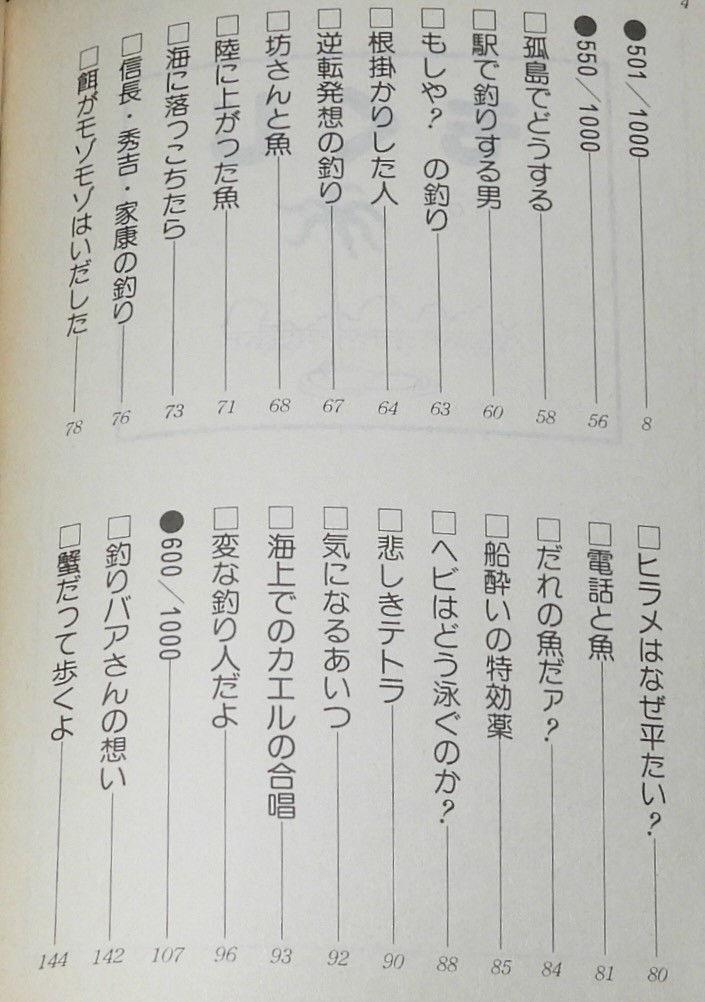 4
●501／1000 8
●550／1000 56
□孤島でどうする 58
□駅で釣りする男 60
□もしや？　の釣り 63
□根掛かりした人 64
□逆転発想の釣り 67
□坊さんと魚 68
□陸に上がった魚 71
□海に落っこちたら 73
□信長・秀吉・家康の釣り 76
□餌がモゾモゾはいだした 78
□ヒラメはなぜ平たい？ 80
□電話と魚 81
□だれの魚だァ？ 84
□船酔いの特効薬 85
□ヘビはどう泳ぐのか？ 88
□悲しきテトラ 90
□気になるあいつ 92
□海上でのカエルの合唱 93
□変な釣り人だよ 96
●600／1000 107
□釣りバアさんの想い 142
□蟹だって歩くよ 144